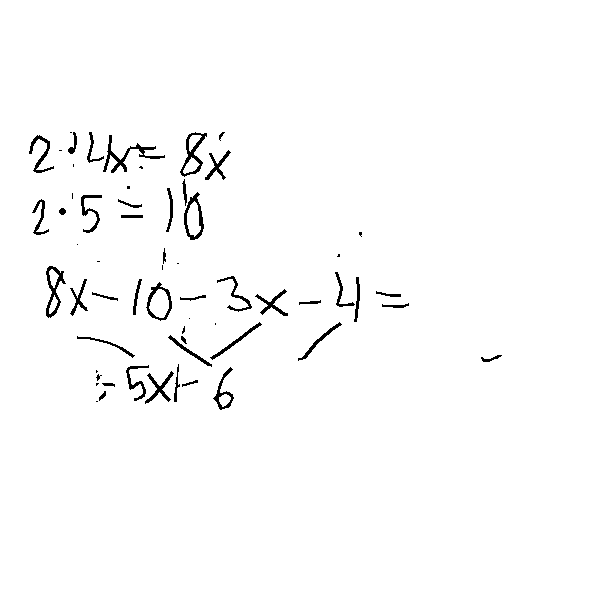 2·4x=8x
2·5=10
8x-10-3x-4=
=5x+-6